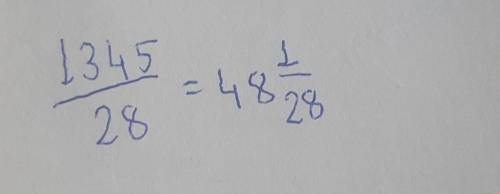 1345/28 = 48 1/28